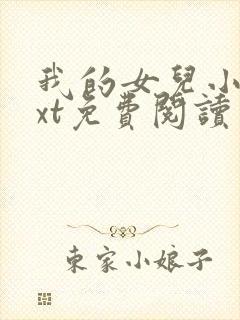 我的女兒小
xt免費閱讀
東家小娘子